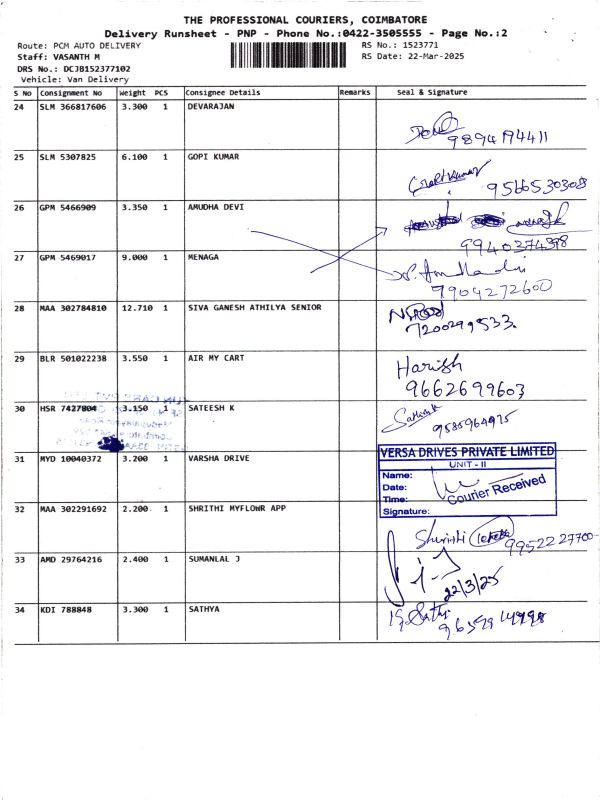 THE PROFESSIONAL COURIERS, COIMBATORE
Delivery Runsheet - PNP - Phone No.:0422-3505555 - Page No.:2
Route: PCM AUTO DELIVERY
RS No.: 1523771
Staff: VASANTH M
RS Date: 22-Mar-2025
DRS No.: DCJB152377102
Vehicle: Van Delivery
S No Consignment No Weight PCS Consignee Details Remarks Seal & Signature
24 SLM 366817606 3.300 1 DEVARAJAN
9894194411
25 SLM 5307825 6.100 1 GOPI KUMAR
9566530308
26 GPM 5466909 3.350 1 AMUDHA DEVI
9940374398
27 GPM 5469017 9.000 1 MENAGA
7904272600
28 MAA 302784810 12.710 1 SIVA GANESH ATHILYA SENIOR
7200299533
29 BLR 501022238 3.550 1 AIR MY CART
Harish
9662699603
30 HSR 7427804 3.150 1 SATEESH K
31 MYD 10040372 3.200 1 VARSHA DRIVE
VERSA DRIVES PRIVATE LIMITED
UNIT - II
Name:
Date:
Time:
Signature:
Courier Received
32 MAA 302291692 2.200 1 SHRITHI MYFLOWR APP
Shrithi
9952227700
33 AMD 29764216 2.400 1 SUMANLAL J
22/3/25
34 KDI 788848 3.300 1 SATHYA